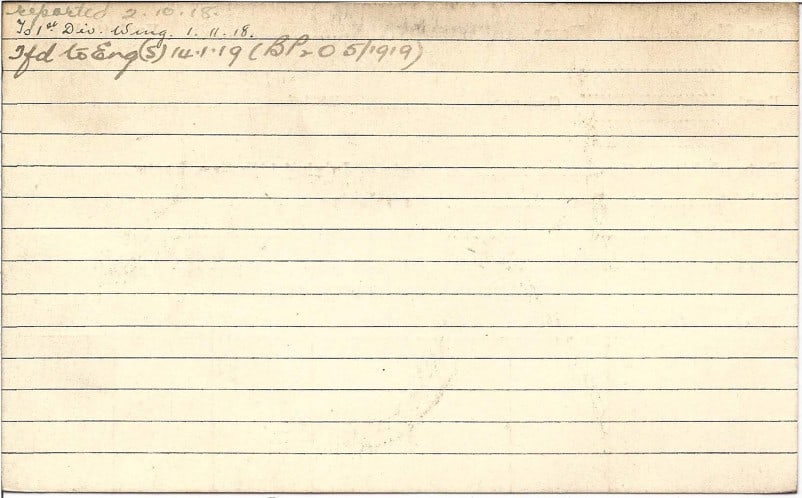 reported 2.10.18.
Td 1st Div. Wing. 1.11.18.
Tfd to Eng(S) 14.1.19 (BPr O 5/1919)